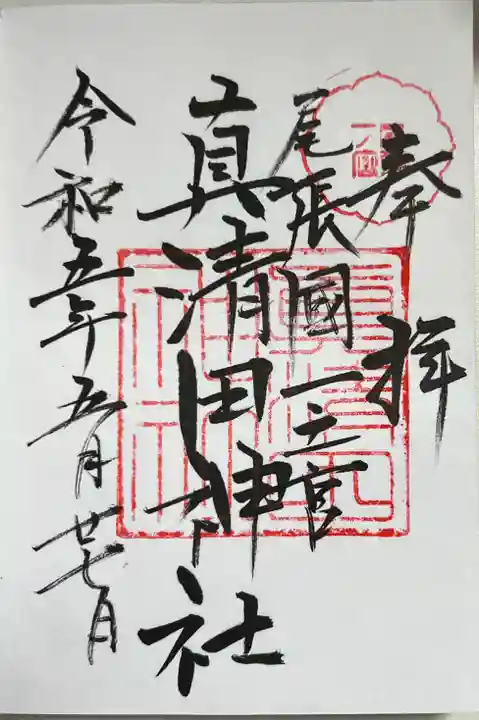 奉拝
尾張國一之宮
真清田神社
令和五年五月廿七日